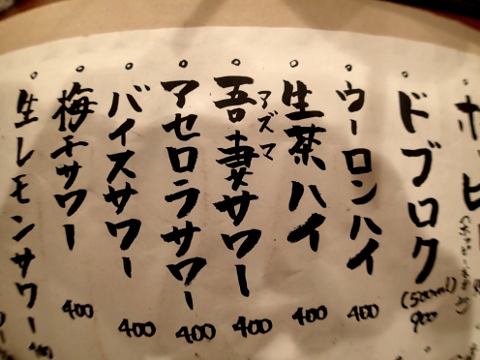 ホッピー
ドブロク
(500ml)
900
ウーロンハイ
400
生茶ハイ
400
吾妻サワー
アズマ
400
アセロラサワー
400
バイスサワー
400
梅干サワー
400
生レモンサワー
400